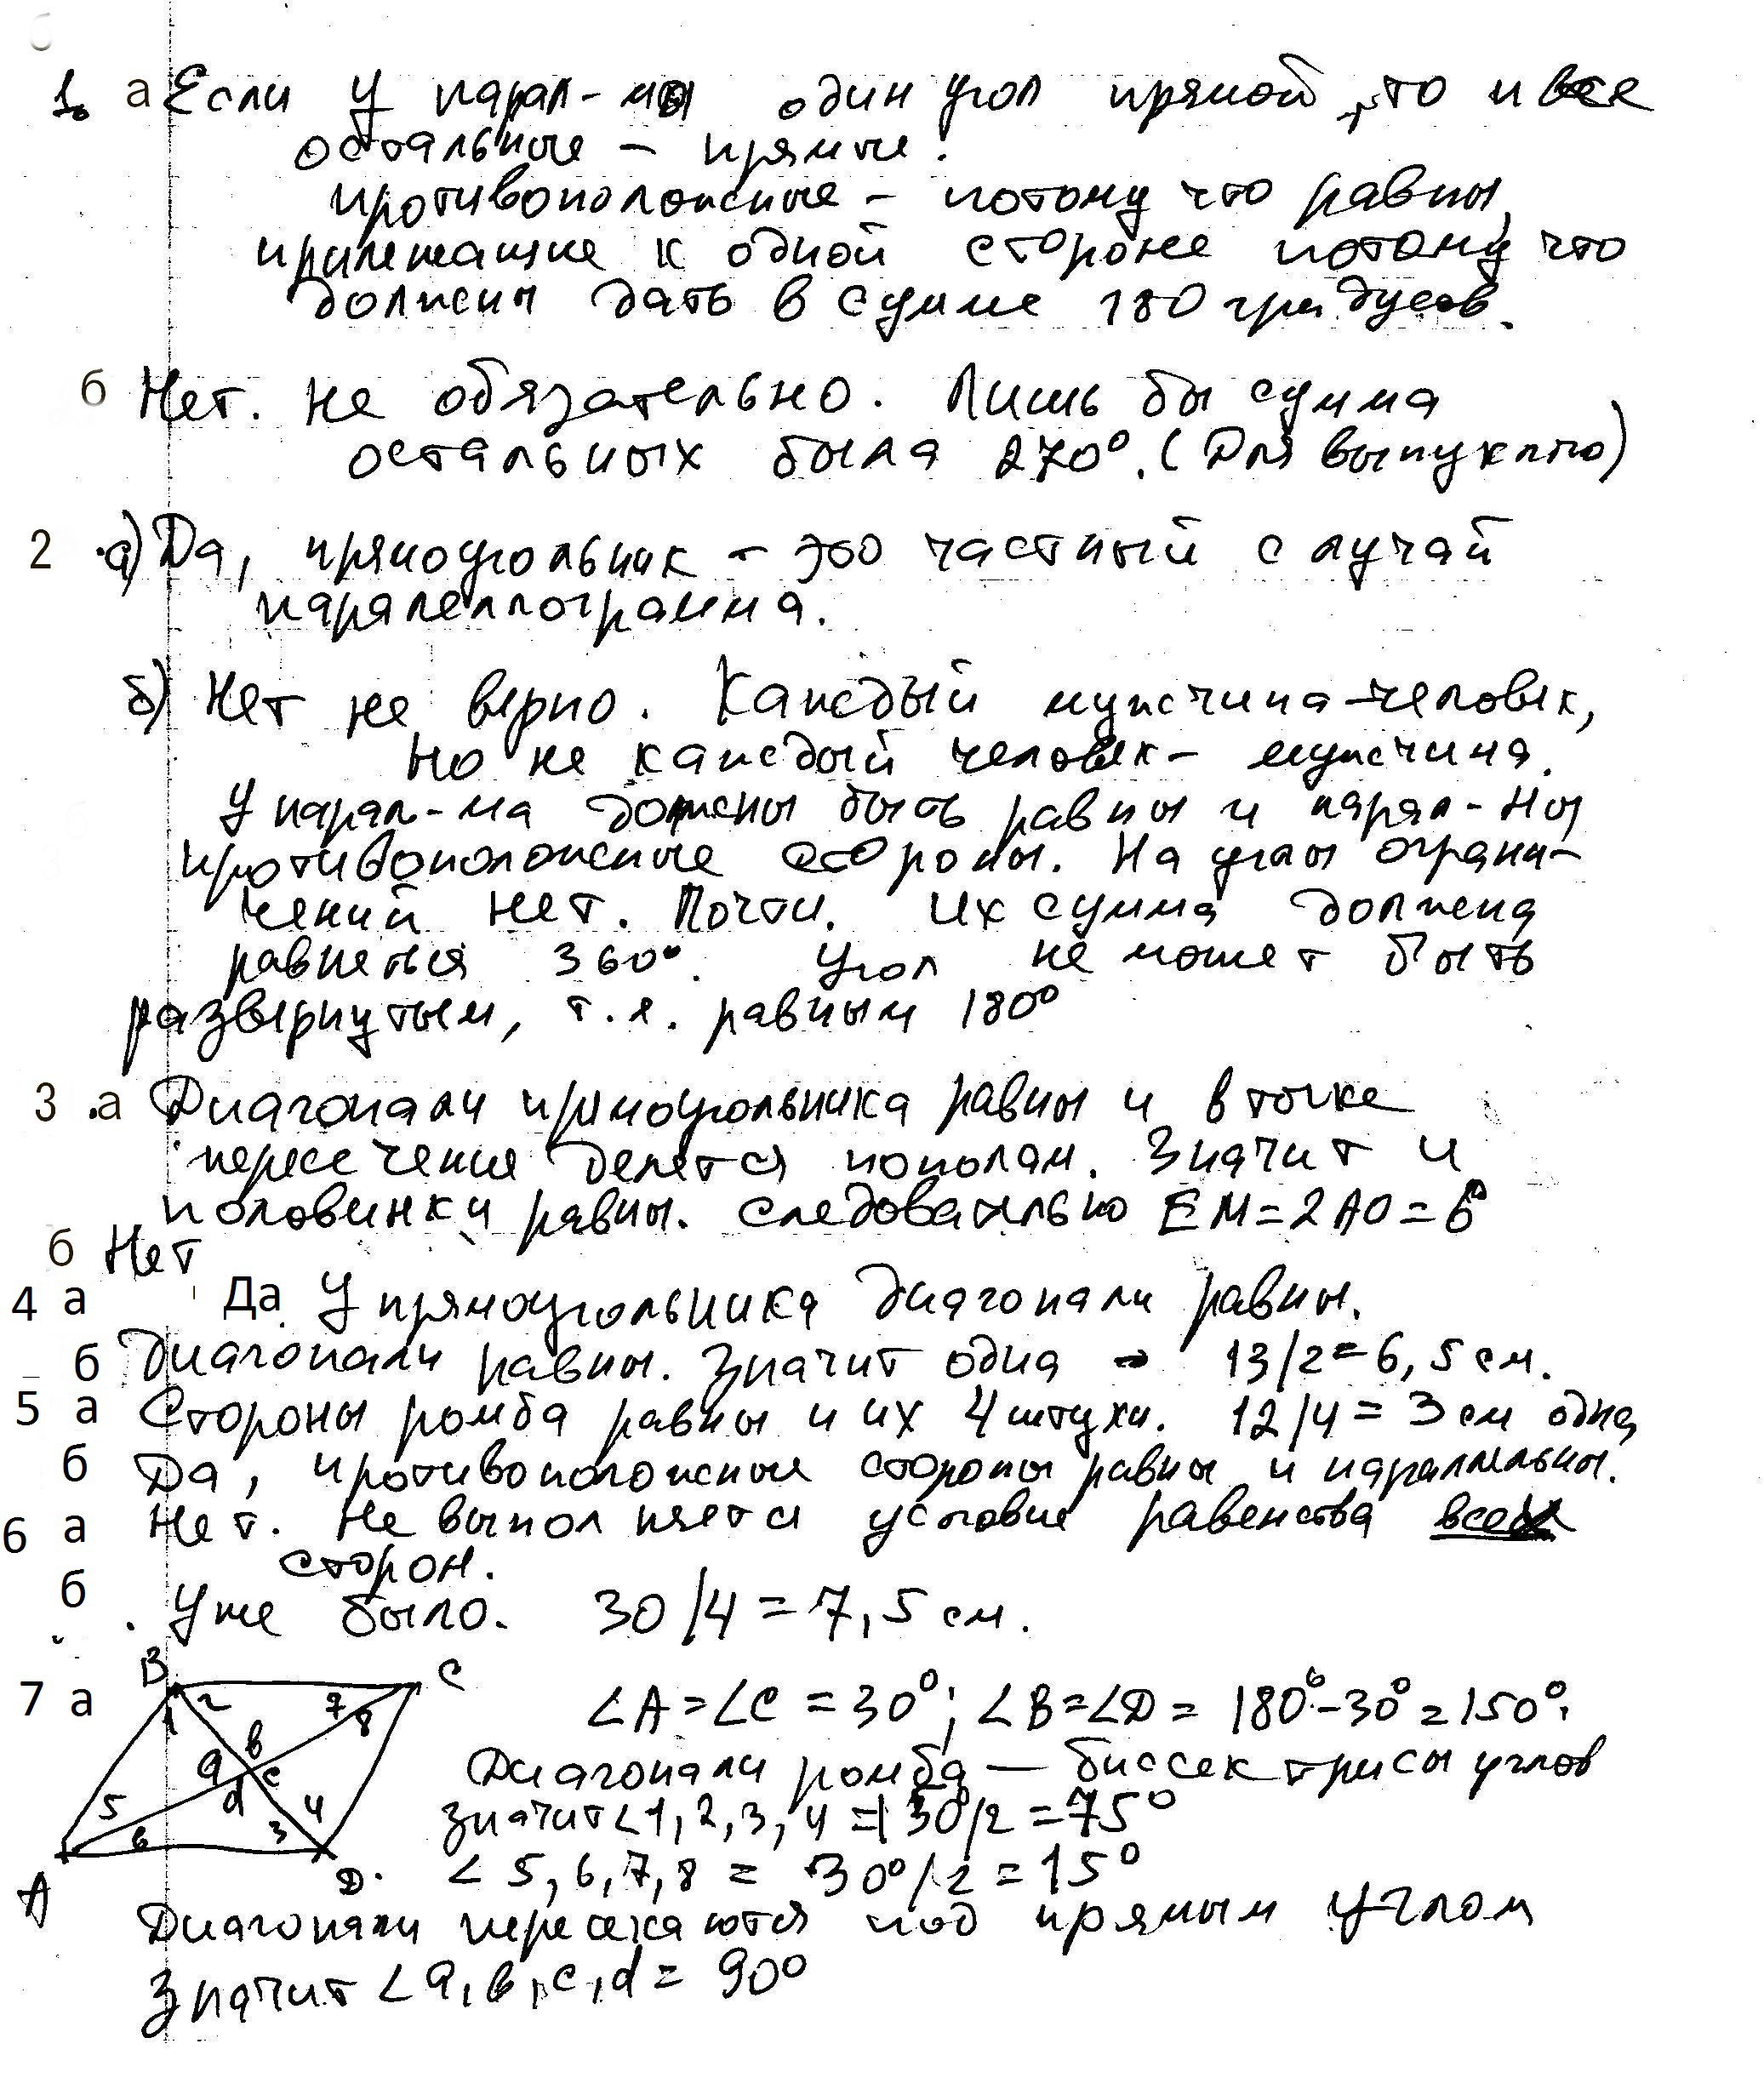 1. а Если у парал-ма один угол прямой, то и все
остальные - прямые.
противоположные - потому что равны,
прилежащие к одной стороне потому что
должны дать в сумме 180 градусов.
б Нет. Не обязательно. Лишь бы сумма
остальных была 270°. (Для выпуклого)
2 а) Да, прямоугольник - это частный случай
паралеллограмма.
б) Нет не верно. Каждый мужчина-человек,
но не каждый человек - мужчина.
У парал-ма должны быть равны и парал-ны
противоположные стороны. На углы ограни-
чений нет. Почти. Их сумма должна
равняться 360°. Угол не может быть
развернутым, т.е. равным 180°
3 .а Диагонали прямоугольника равны и в точке
пересечения делятся пополам. Значит и
половинки равны. Следовательно EM=2AO=6
б Нет
4 а Да У прямоугольника диагонали равны.
б Диагонали равны. Значит одна - 13/2=6,5см.
5 а Стороны ромба равны и их 4 штуки. 12/4=3см одна
б Да, противоположные стороны равны и параллельны.
6 а Нет. Не выполняется условие равенства всех
сторон.
б Уже было. 30/4=7,5см.
7 а
B C
2 7 8
1
a b c d
5 4
6 3
A D.
∠A=∠C=30°; ∠B=∠D= 180°-30°=150°;
Диагонали ромба — биссектрисы углов
значит ∠1,2,3,4 =130/2=75°
∠5,6,7,8 = 30°/2=15°
Диагонали пересекаются под прямым углом
Значит ∠a,b,c,d= 90°